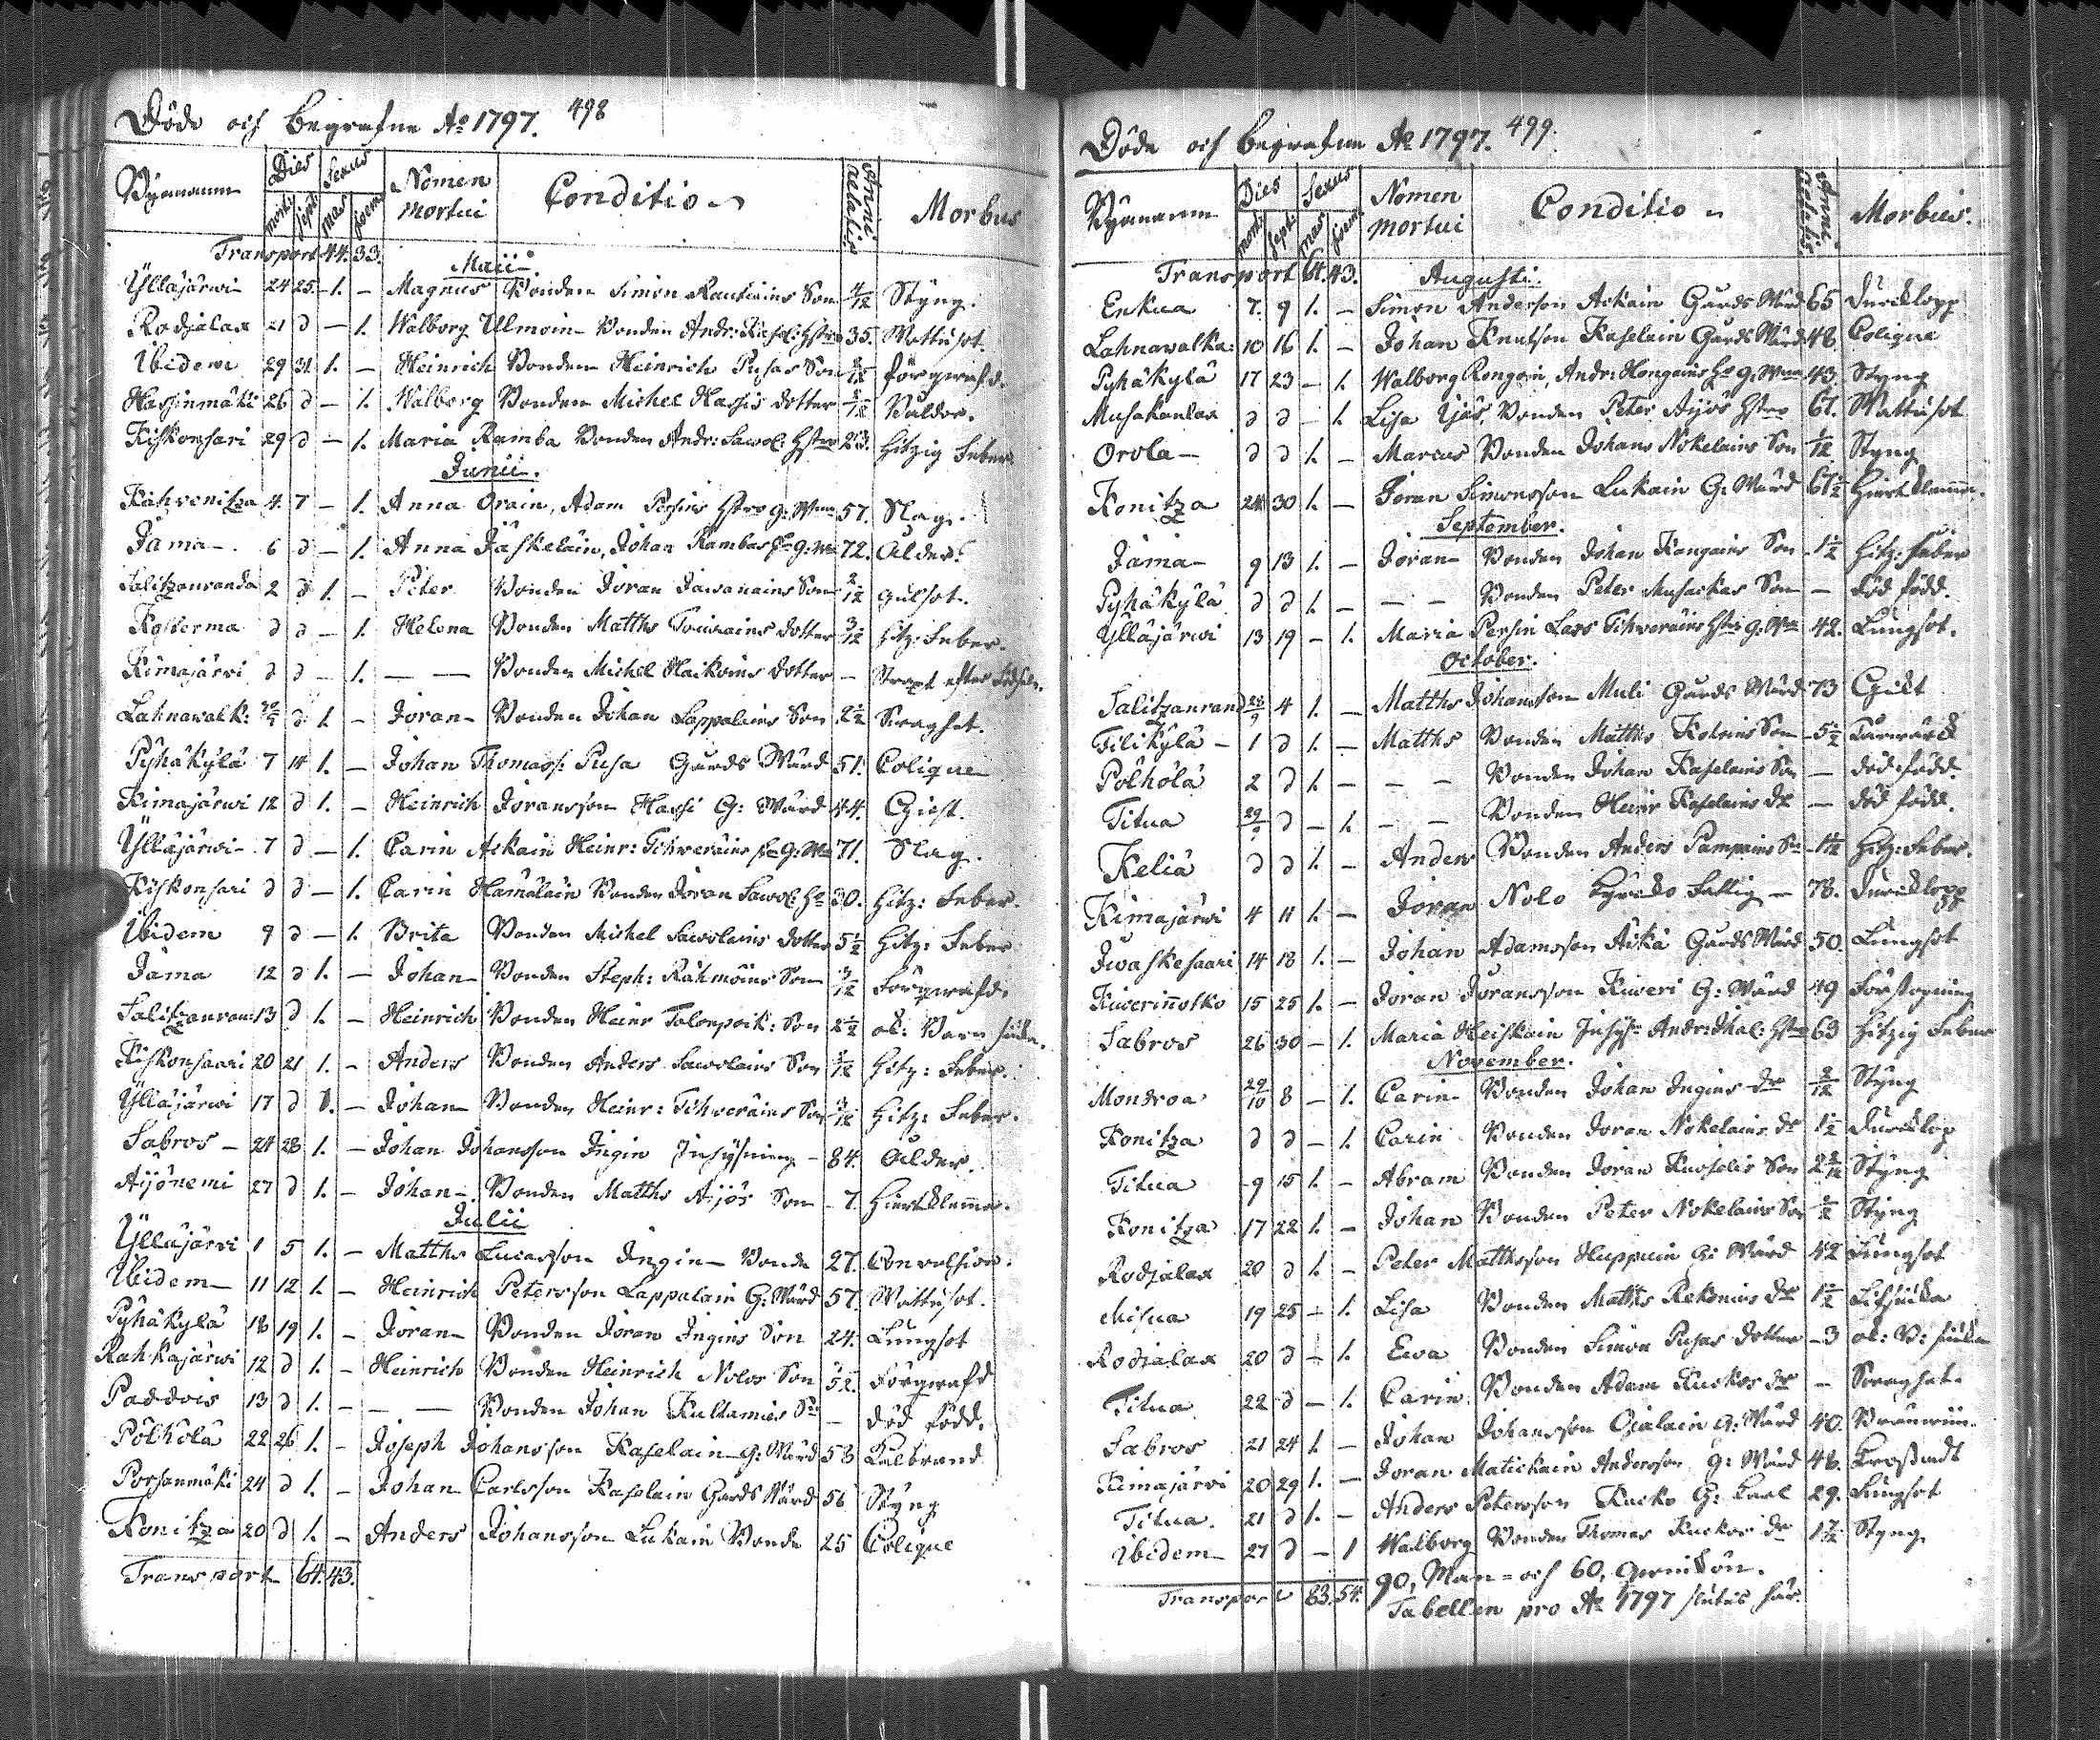 Döde och Begrafne Ao 1797. 498
Bÿenamn Dies Sexus Nomen mortui Conditio Anni aetatis Morbus
morti sept mas foem
Transport 44. 33.
Maii
Ylläjärwi 24 25 1. – Magnus Bonden Simon Rautiains Son 4/12 Styng.
Rodjalax 21 d – 1. Walborg Ullmoin Bonden Andr: Kasel: Hstro 35. Wattusot.
Ibidem 29 31 1. – Heinrich Bonden Heinrich Pusas Son förgwafd.
Hassinmäki 26 d – 1. Walborg Bonden Michel Hassis dotter
Kiskonsari 29 d – 1. Maria Ramba Bonden Andr: Sawol: Hstro 23. Hitzig Feber
Junii.
Kahvenitza 4 7 – 1. Anna Orain, Adam Persins Hstro G: W 57. Slag.
Jama – 6 d – 1. Anna Jäskeläin, Johan Rambas G: 72. Ålder.
Salitzanranda 2 d 1. – Peter Bonden Joran Dawanains Son 2/12 gulsot.
Kosterma d d – 1. Helena Bonden Matths Touwains dotter 3/12 Hitz: Feber.
Kimajärvi d d – 1. – – Bonden Michel Haikoins dotter – Straxt efter födseln.
Lahnawalk: d 1. – Joran Bonden Johan Lappalains Son 2 1/2
Pyhäkylä 7 14 1. – Johan Thomass: Pusa Gårds Wärd 51. Colique
Kimajärwi 12 d 1. – Heinrich Joransson Hassi G: Wärd 44. Gicht.
Ylläjärwi – 7 d – 1. Carin Ackain Heinr: Tihveräins G: 71. Slag.
Kiskonsari d d – 1. Carin Hämäläin Bonden Joran Sawol: H 30. Hitz: Feber.
Ibidem 9 d – 1. Brita Bonden Michel Sawolains dotter 5 1/2 Hitz: Feber
Jama 12 d 1. – Johan Bonden Steph: Rähmöins Son 3/12 Förgwafd.
Salitzanrand 13 d 1. – Heinrich Bonden Heinr Tolonpoik: Son 2 1/2 ok: Barn siuka.
Kiskonsaari 20 21 1. – Anders Bonden Anders Sawolains Son Hitz: Feber.
Ylläjärwi 17 d 1. – Johan Bonden Heinr: Tihveräins Son Hitz: Feber.
Sabros – 24 28 1. – Johan Johansson Ingin Inhysning – 84. Ålder.
Aijönemi 27 d 1. – Johan –. Bonden Matths Aijös Son – 7. Hiertklemma.
Julii
Ylläjärvi 1 5 1. – Matths Lucasson Ingin – Bonde 27. Convulsion.
Ibidem – 11 12 1. – Heinrich Petersson Lappalain G: Wärd 57. Wattusot.
Pyhäkylä 18 19 1. – Joran – Bonden Joran Ingins Son 24. Lungsot
Rahkajärwi 12 d 1. – Heinrich Bonden Heinrich Nolos Son Förgwafd
Paddois 13 d 1. – – – Bonden Johan Kultamies Sn – död född.
Pölhölä 22 26 1. – Joseph Johansson Kaselain G: Wärd 58 Kalbrand
Porsanmäki 24 d 1. – Johan Carlsson Kaselain Gards Wärd 56 Styng
Konitza 20 d 1. – Anders Johansson Lukain Bonde 25 Colique
Transport 64. 43.
Döda och Begrafne Ao 1797. 499.
Bÿenamn Dies Sexus Nomen mortui Conditio Anni aetatis Morbus.
morti sept. mas foem
Transport 64. 43. Augusti.
Enkua 7. 9 1. – Simon Anderson Ackain Gards Wärd 65 Durcklopp
Lahnawalka: 10 16 1. – Johan Knutson Kaselain Gards Wärd 48. Colique
Pyhäkylä 17 23 – 1. Walborg Rongain, Andr: Hongains G: 43. Styng
Musakanlax d d – 1. Lisa Bonden Peter Aijös Hstro 67. Wattusot
Orola – d d 1. – Marcus Bonden Johans Nokelains Son Styng
Konitza 24 30 1. – Joran Simonsson Lukain G: Wärd 67 1/2 Hiertklemma.
September.
Jama – 9 13 1. – Joran – Bonden Johan Kangains Son – 1 1/2 Hitz: Feber
Pyhäkylä d d 1. – – – Bonden Peter Musackas Son – död född.
Ylläjärwi 13 19 – 1. Maria Persin Lars Tihveräins Hstr G: 42. Lungsot.
October.
Salitzanrand 28/9 4 1. – Matths Johansson Muli Gards Wärd 73 Gikt
Tilikylä – 1 d 1. – Matths Bonden Matths Son – 5 1/2
Pölhölä 2 d 1. – – – Bonden Johan Kaselains Son – död född.
Titua 29/9 d – 1. – – Bonden Heinr Kaselains dr – död född.
Keliä d d 1. – Anders Bonden Anders Pampains Sn Hitz: Feber.
Kimajärwi 4 11 1. – Joran Nolo Kyrcko Fattig – 78. Durcklopp
Iwaskesaari 14 18 1. – Johan Adamsson Äikä Gards Wärd 50. Lungsot
Kiwerinotko 15 25 1. – Joran Joransson Kiweri G: Wärd 49 Förstopning
Sabros 26 30 – 1. Maria Heiskain Inhys: Andr: Ihal: Hstro 63 Hitzig Feber
November.
Mondroa 29/10 8 – 1. Carin – Bonden Johan Ingins dr 2/12 Styng
Konitza d d – 1. Carin Bonden Joran Nokelains dr 1 1/2 Durcklop
Titua 9 15 1. – Abram Bonden Joran Kuosselis Son Styng
Konitza 17 22 1. – Johan Bonden Peter Nokelains Son Styng
Rodjalax 20 d 1. – Peter Matthsson Huppuin G: Wärd 42 Lungsot
Misua 19 25 – 1. Lisa Bonden Matths Rekonius dr 1 1/2
Rodjalax 20 d – 1. Ewa Bonden Simon Pusas dotter – 3 ok: B: siuka
Titua 22 d – 1. Carin Bonden Adam Kuckos dr –
Sabros 21 24 1. – Johan Johansson Ojalain G: Wärd 40. Bränwin.
Kimajärvi 20 29 1. – Joran Matickain Andersson G: Wärd 48.
Titua. 21 d 1. – Anders Petersson Kucko G: Karl 29. Lungsot
Ibidem – 27 d – 1 Walborg Bonden Thomas Kuckos dr Styng
Transport 83. 54. 90, Man- och 60, Qwinkön.
Tabellen pro Ao 1797 slutas här.